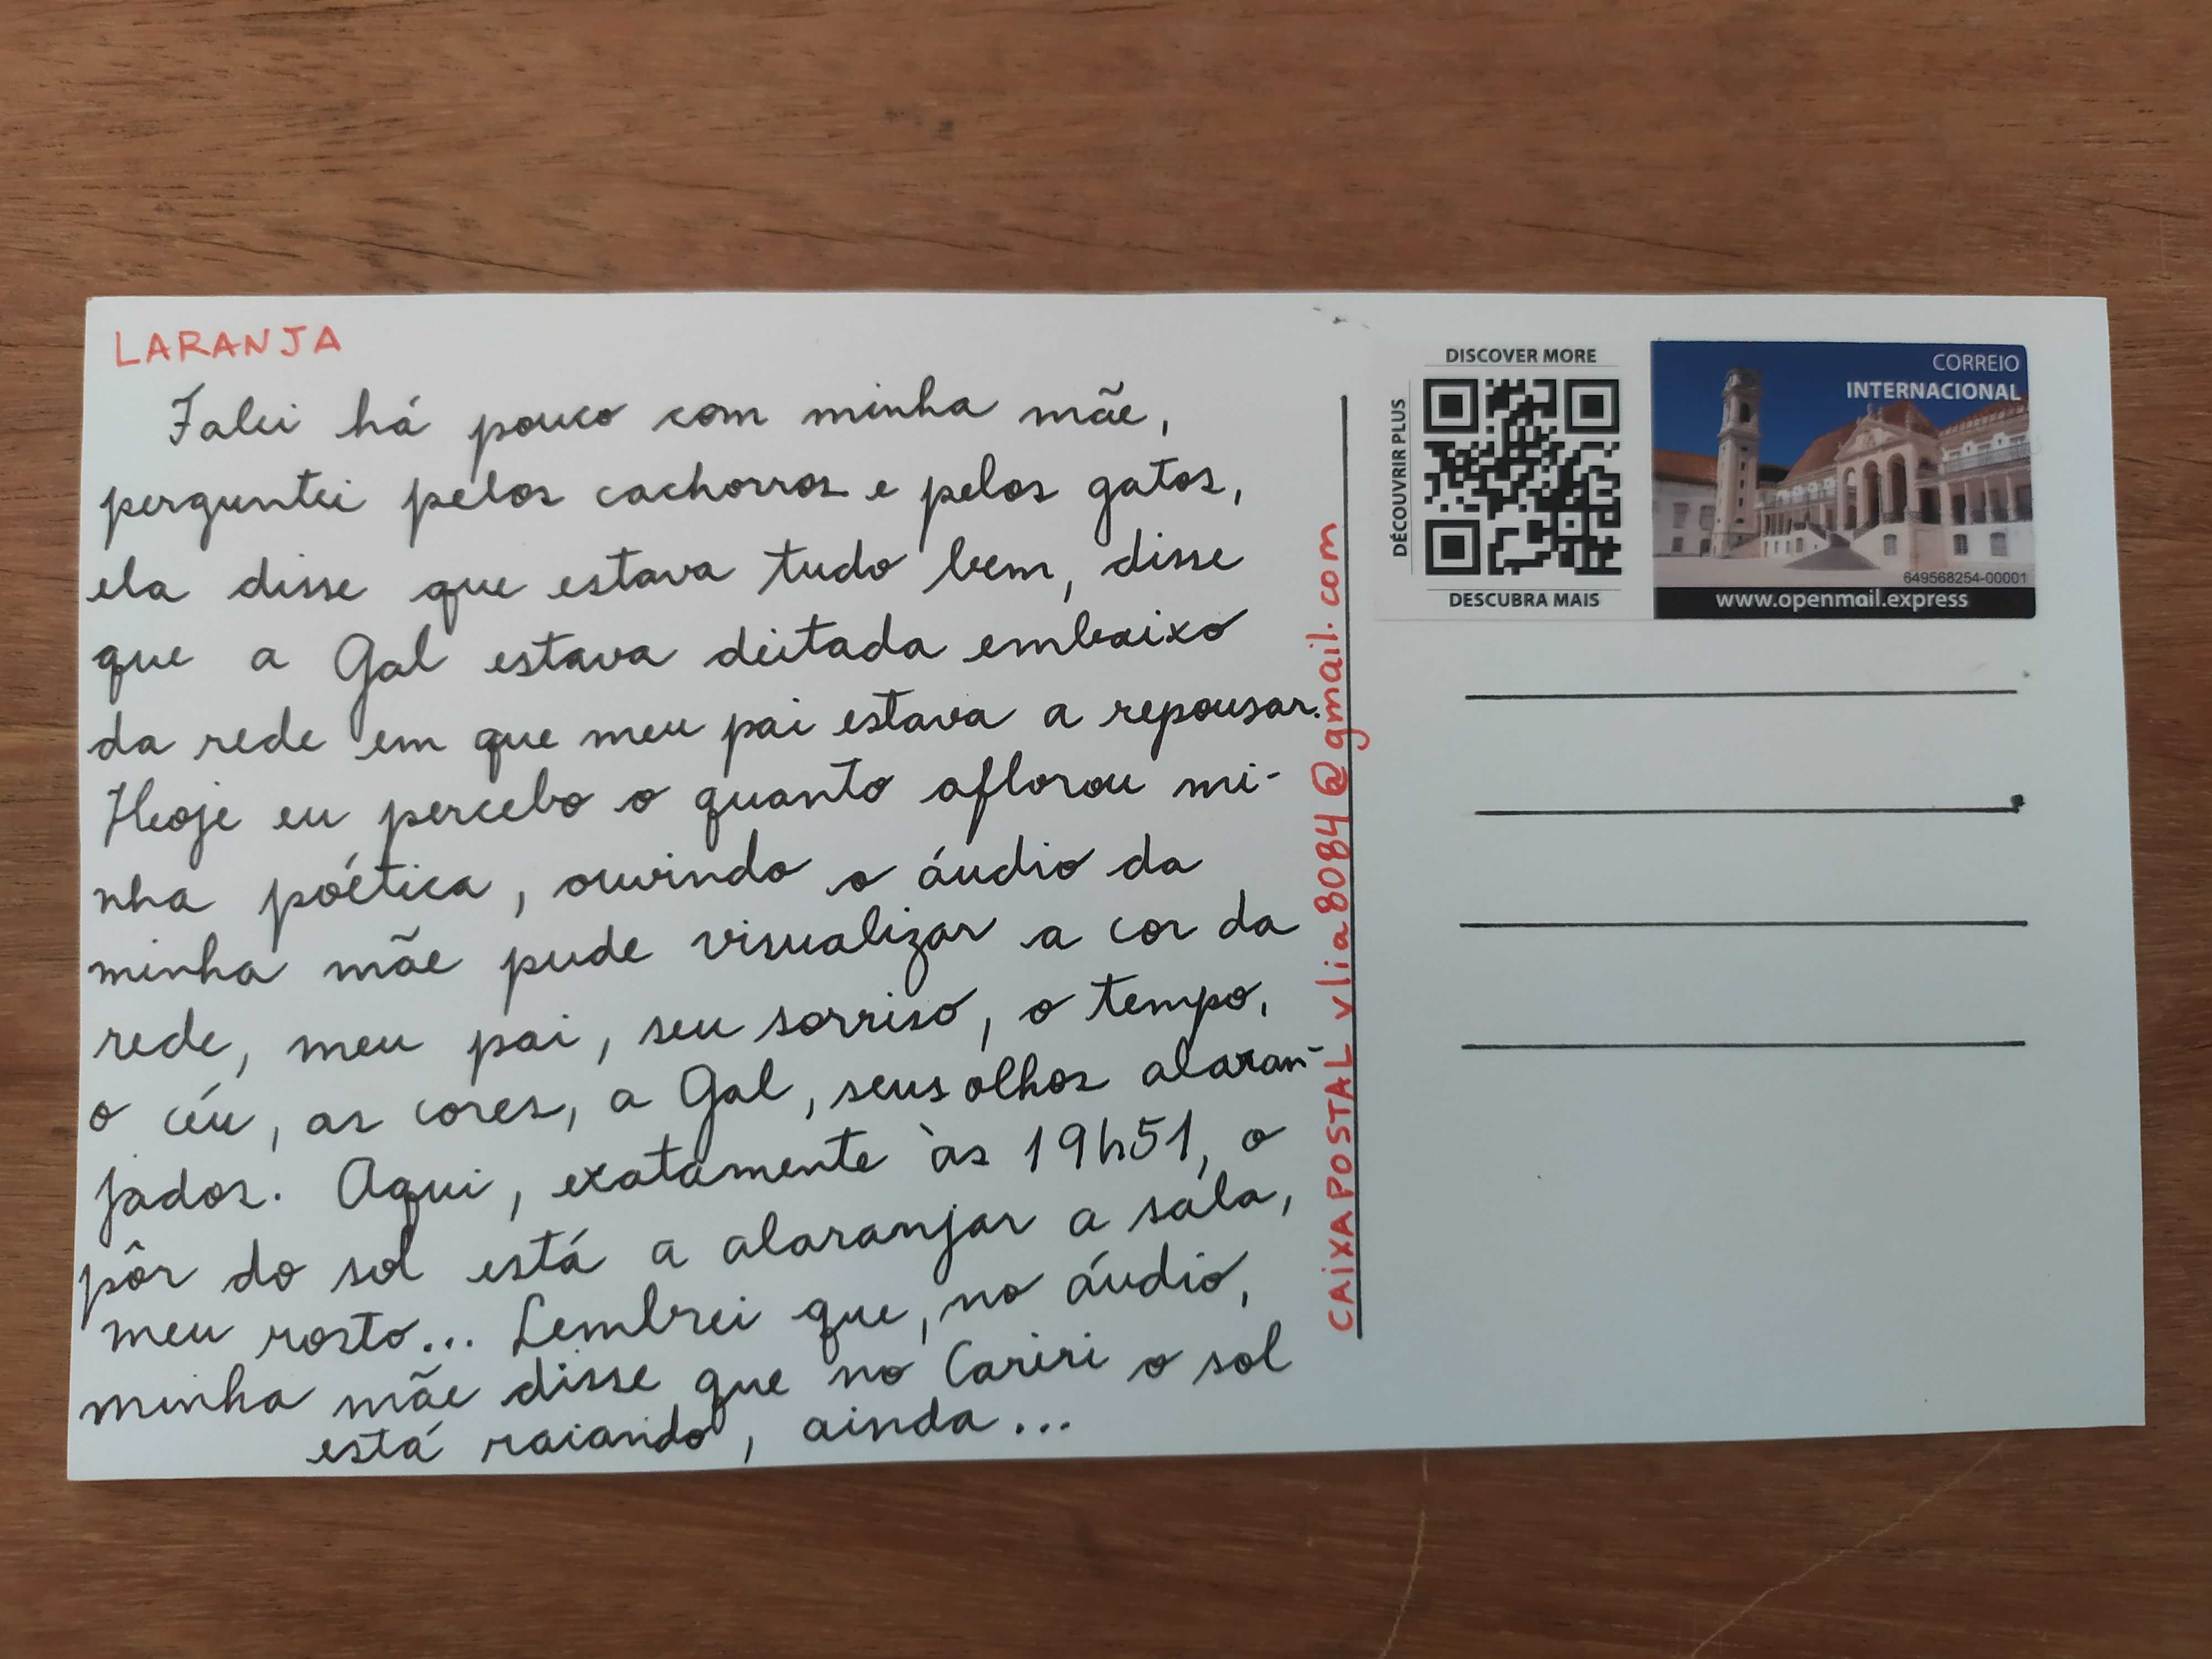 LARANJA
Falei há pouco com minha mãe,
perguntei pelos cachorros e pelos gatos,
ela disse que estava tudo bem, disse
que a Gal estava deitada embaixo
da rede em que meu pai estava a repousar.
Hoje eu percebo o quanto aflorou mi-
nha poética, ouvindo o áudio da
minha mãe pude visualizar a cor da
rede, meu pai, seu sorriso, o tempo,
o céu, as cores, a Gal, seus olhos alaran-
jados. Aqui, exatamente às 19h51, o
pôr do sol está a alaranjar a sala,
meu rosto... Lembrei que, no áudio,
minha mãe disse que no Cariri o sol
está raiando, ainda...
CAIXA POSTAL vlia8084@gmail.com
DISCOVER MORE
DÉCOUVRIR PLUS
DESCUBRA MAIS
CORREIO
INTERNACIONAL
649568254-00001
www.openmail.express